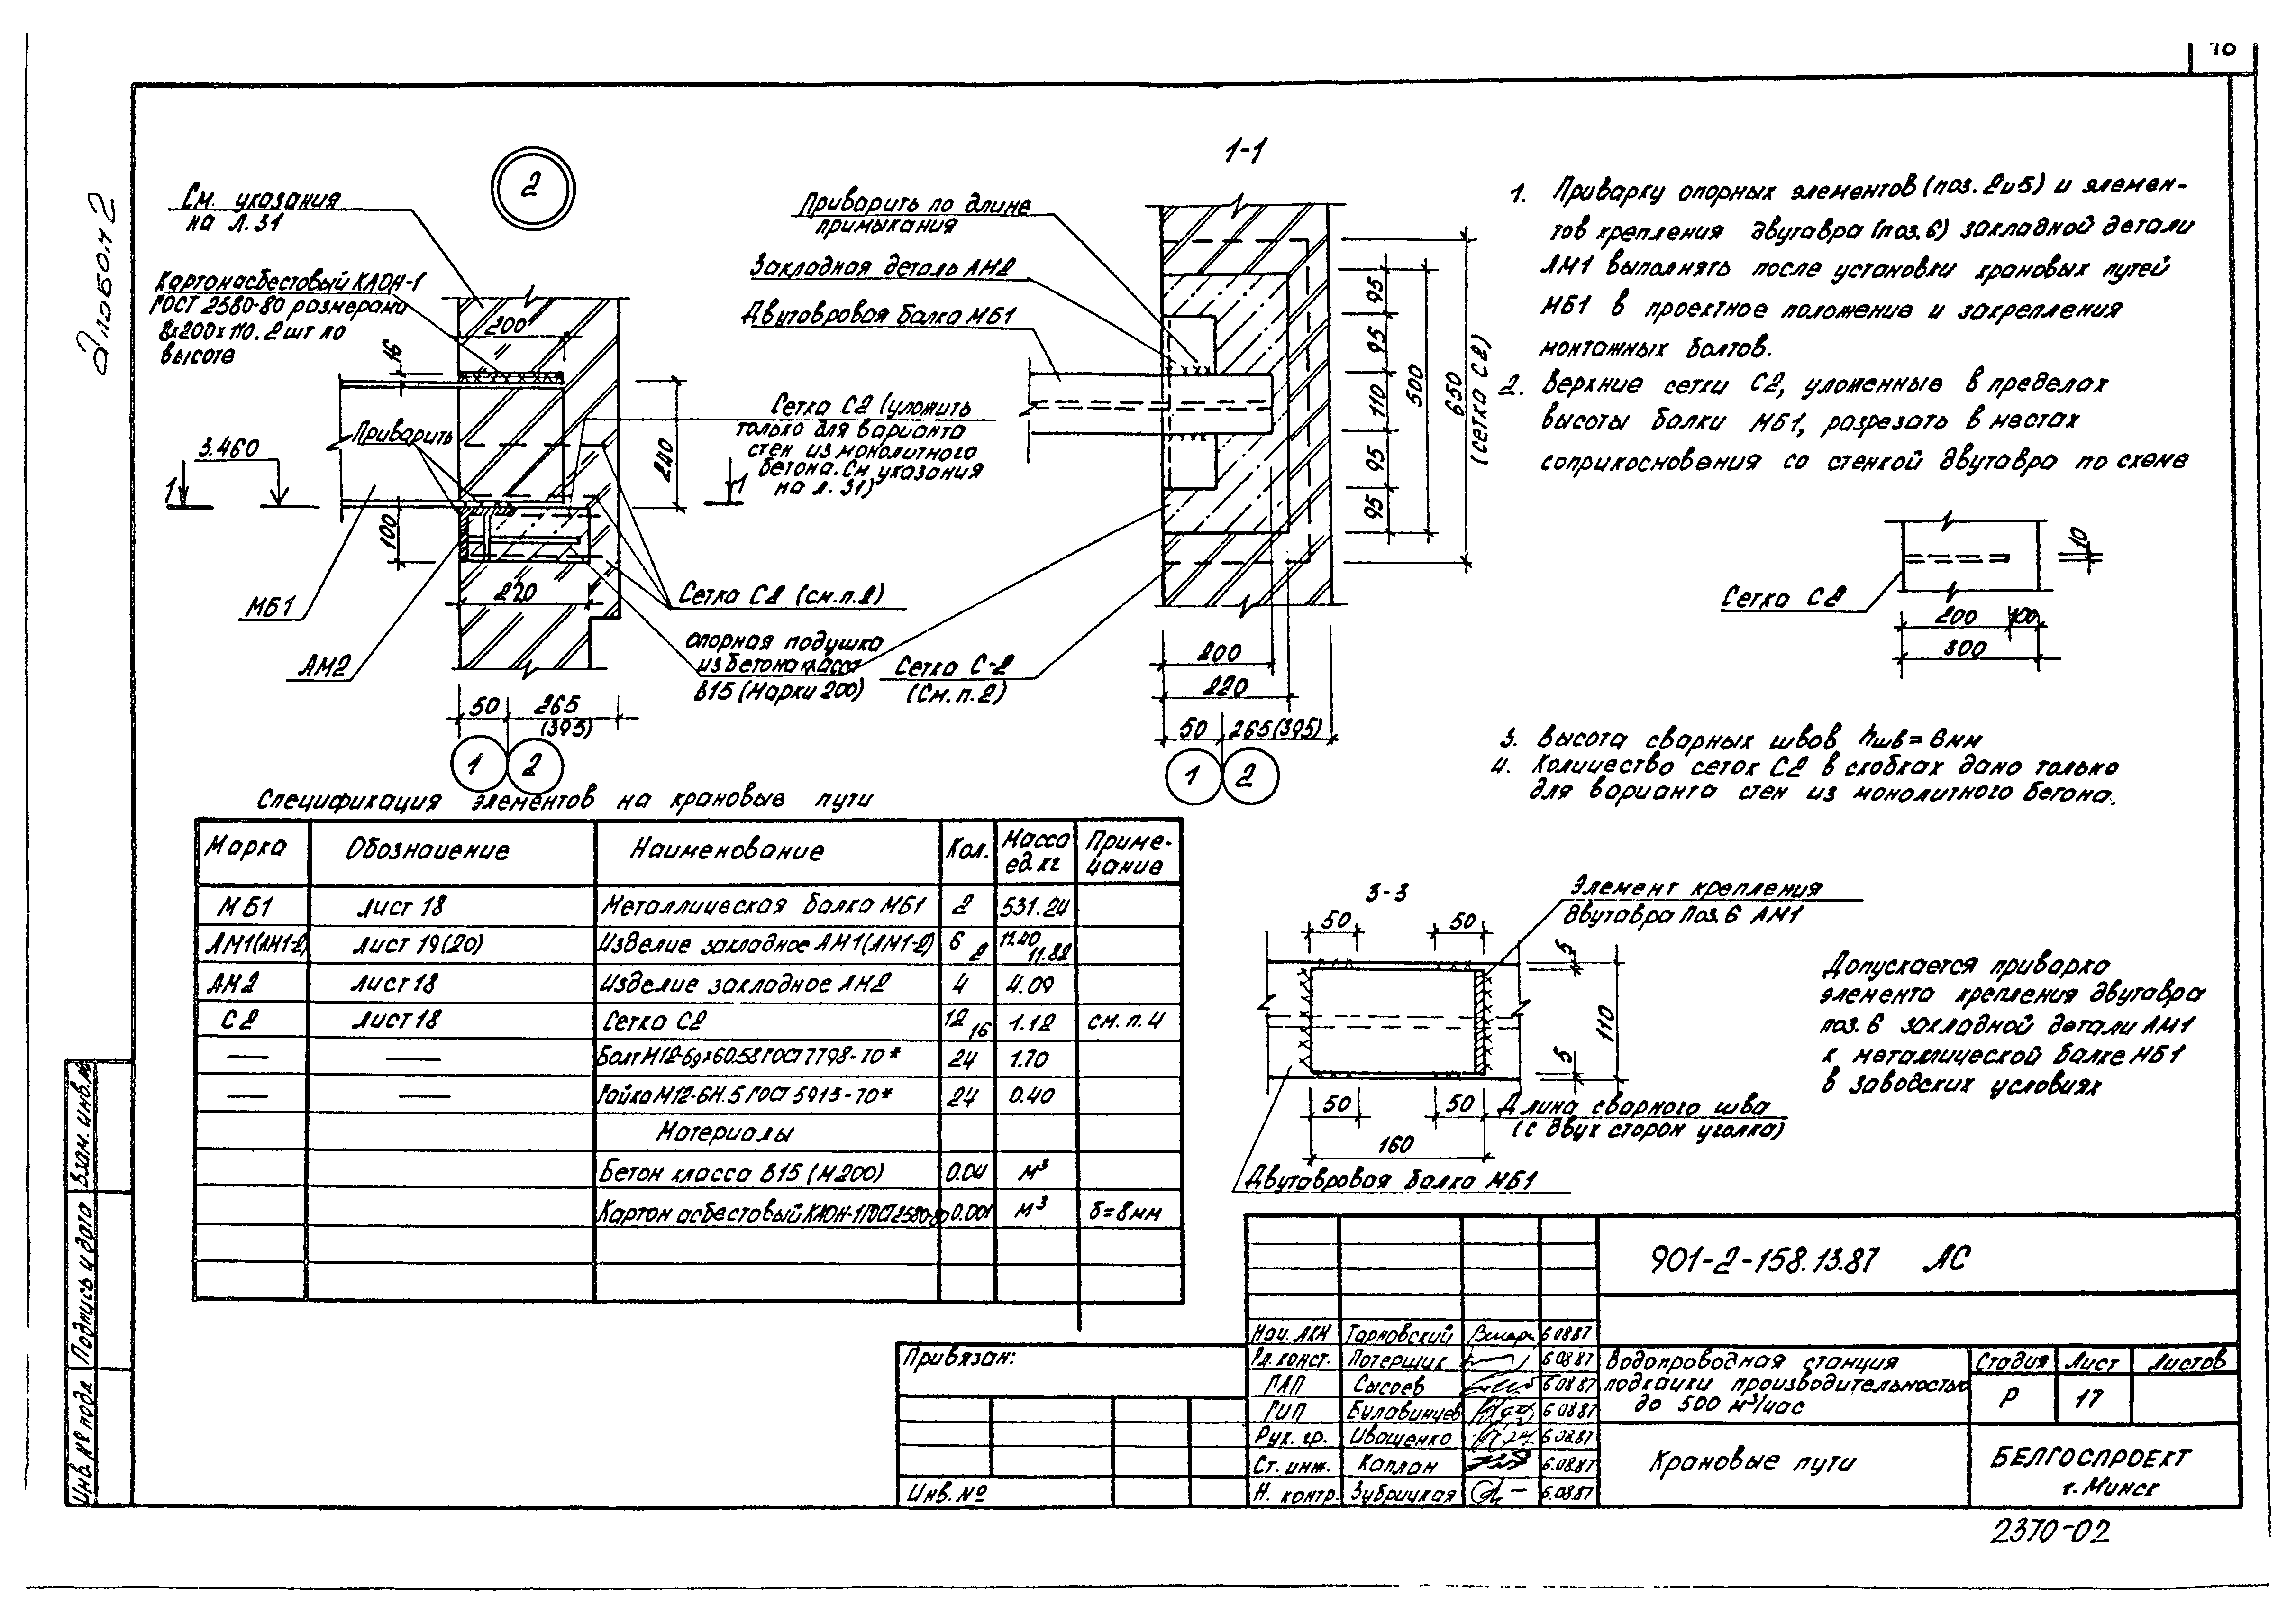 18
Альбом 2
2
См. указания
на Л.31
Картон асбестовый КАОН-1
ГОСТ 2580-80 размерами
8х200х110. 2 шт по
высоте
200
16
Приварить
3.460
1
1
240
100
220
МБ1
АМ2
50
265
(395)
1
2
Сетка С2 (уложить
только для варианта
стен из монолитного
бетона. См. указания
на л. 31)
Сетка С2 (см. п. 2)
опорная подушка
из бетона класса
В15 (марки 200)
1-1
Приварить по длине
примыкания
Закладная деталь АМ2
Двутавровая балка МБ1
95
95
110
95
95
500
650
(сетка С2)
Сетка С-2
(См. п. 2)
200
220
50
265(395)
1
2
1. Приварку опорных элементов (поз. 2 и 5) и элемен-
тов крепления двутавра (поз. 6) закладной детали
АМ1 выполнять после установки крановых путей
МБ1 в проектное положение и закрепления
монтажных болтов.
2. Верхние сетки С2, уложенные в пределах
высоты балки МБ1, разрезать в местах
соприкосновения со стенкой двутавра по схеме
Сетка С2
10
200
100
300
3. Высота сварных швов hшв = 6мм
4. Количество сеток С2 в скобках дано только
для варианта стен из монолитного бетона.
Спецификация элементов на крановые пути
Марка Обозначение Наименование Кол. Масса ед. кг Приме-чание
МБ1 Лист 18 Металлическая балка МБ1 2 531.24
АМ1(АМ1-2) Лист 19(20) Изделие закладное АМ1(АМ1-2) 6 2 11.40 11.82
АМ2 Лист 18 Изделие закладное АМ2 4 4.09
С2 Лист 18 Сетка С2 12 16 1.12 см. п. 4
— — Болт М12-6gх60.58 ГОСТ 7798-70* 24 1.70
— — Гайка М12-6Н.5 ГОСТ 5915-70* 24 0.40
Материалы
Бетон класса В15 (М200) 0.04 м³
Картон асбестовый КАОН-1 ГОСТ 2580-80 0.001 м³ δ=8мм
3-3
Элемент крепления
двутавра Поз. 6 АМ1
50
50
5
110
5
50
50
160
Длина сварного шва
(с двух сторон уголка)
Двутавровая балка МБ1
Допускается приварка
элемента крепления двутавра
поз. 6 закладной детали АМ1
к металлической балке МБ1
в заводских условиях
901-2-158.13.87 АС
Нач. АКМ Тарновский 6.08.87
Гл. конст. Потерщук 6.08.87
ГАП Сысоев 6.08.87
ГИП Булавинцев 6.08.87
Рук. гр. Иващенко 6.08.87
Ст. инж. Каплан 6.08.87
Н. контр. Зубрицкая 6.08.87
Водопроводная станция
подкачки производительностью
до 500 м³/час
Стадия Лист Листов
Р 17
Крановые пути
БЕЛГОСПРОЕКТ
г. Минск
Привязан:
Инв. №
Инв. № подл. Подпись и дата Взам. инв. №
2370-02